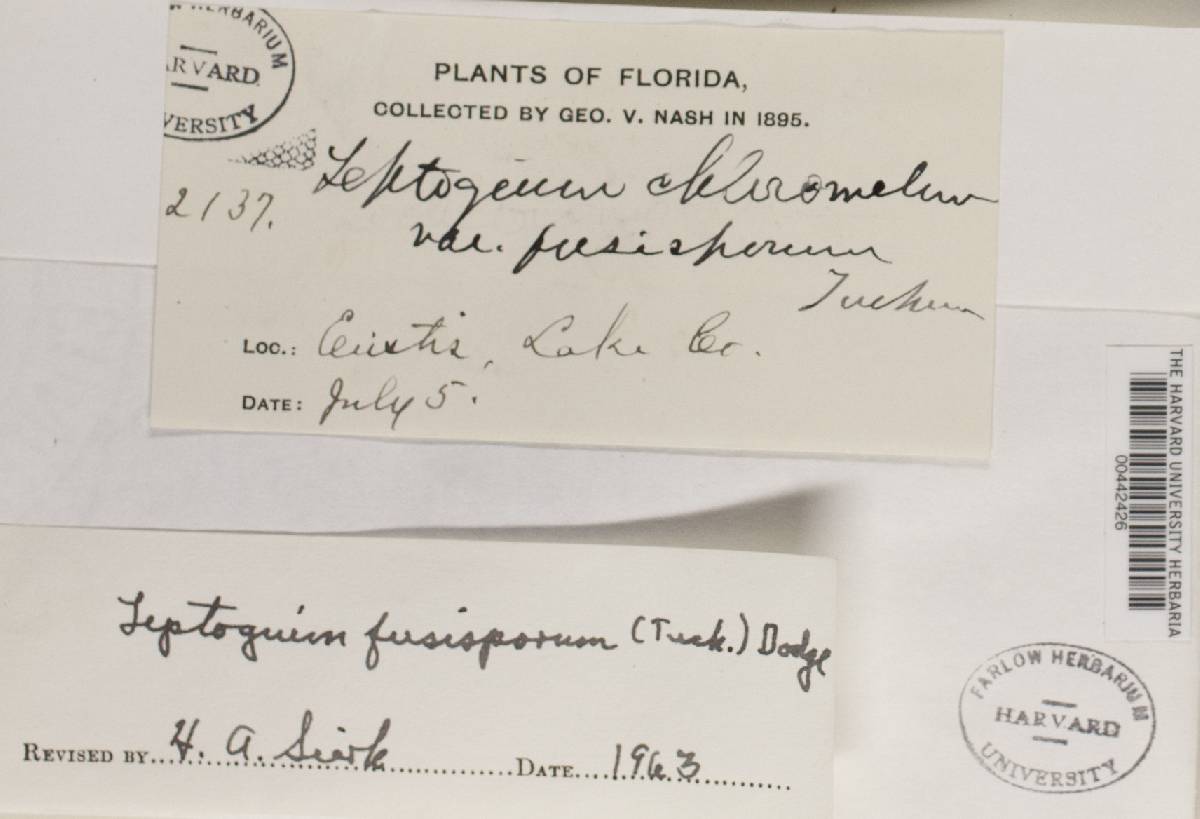 HERBARIUM
HARVARD
UNIVERSITY
PLANTS OF FLORIDA,
COLLECTED BY GEO. V. NASH IN 1895.
2137.
Leptogium chloromelum
var. fusisporum
Tuckerm
LOC.: Eustis, Lake Co.
DATE: July 5.
THE HARVARD UNIVERSITY HERBARIA
00442426
Leptogium fusisporum (Tuck.) Dodge
REVISED BY H. A. Sierk DATE 1963
FARLOW HERBARIUM
HARVARD
UNIVERSITY